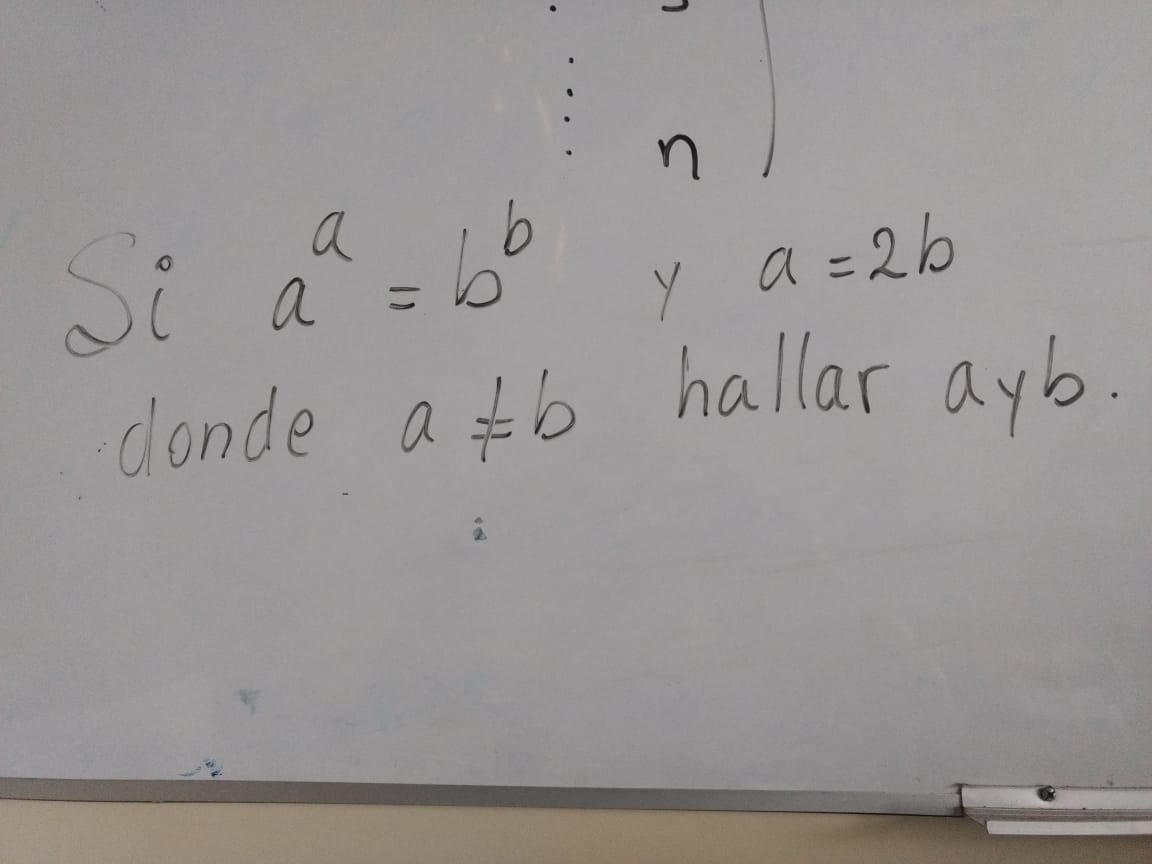 n
Si a^a = b^b y a = 2b
donde a ≠ b hallar a y b.